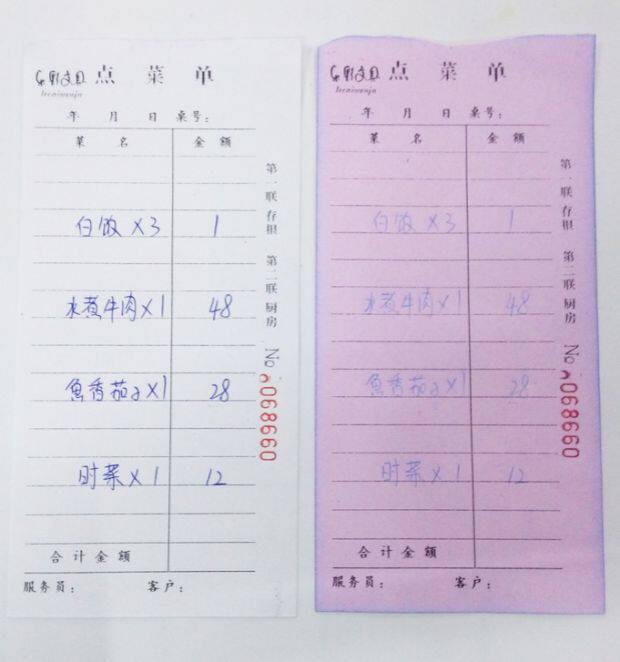 点菜单
年 月 日 桌号：
菜名 金额
白饭×3 1
水煮牛肉×1 48
魚香茄子×1 28
时菜×1 12
合计金额
服务员： 客户：
第一联存根 第二联厨房 No 068660
点菜单
年 月 日 桌号：
菜名 金额
白饭×3 1
水煮牛肉×1 48
魚香茄子×1 28
时菜×1 12
合计金额
服务员： 客户：
第一联存根 第二联厨房 No 068660